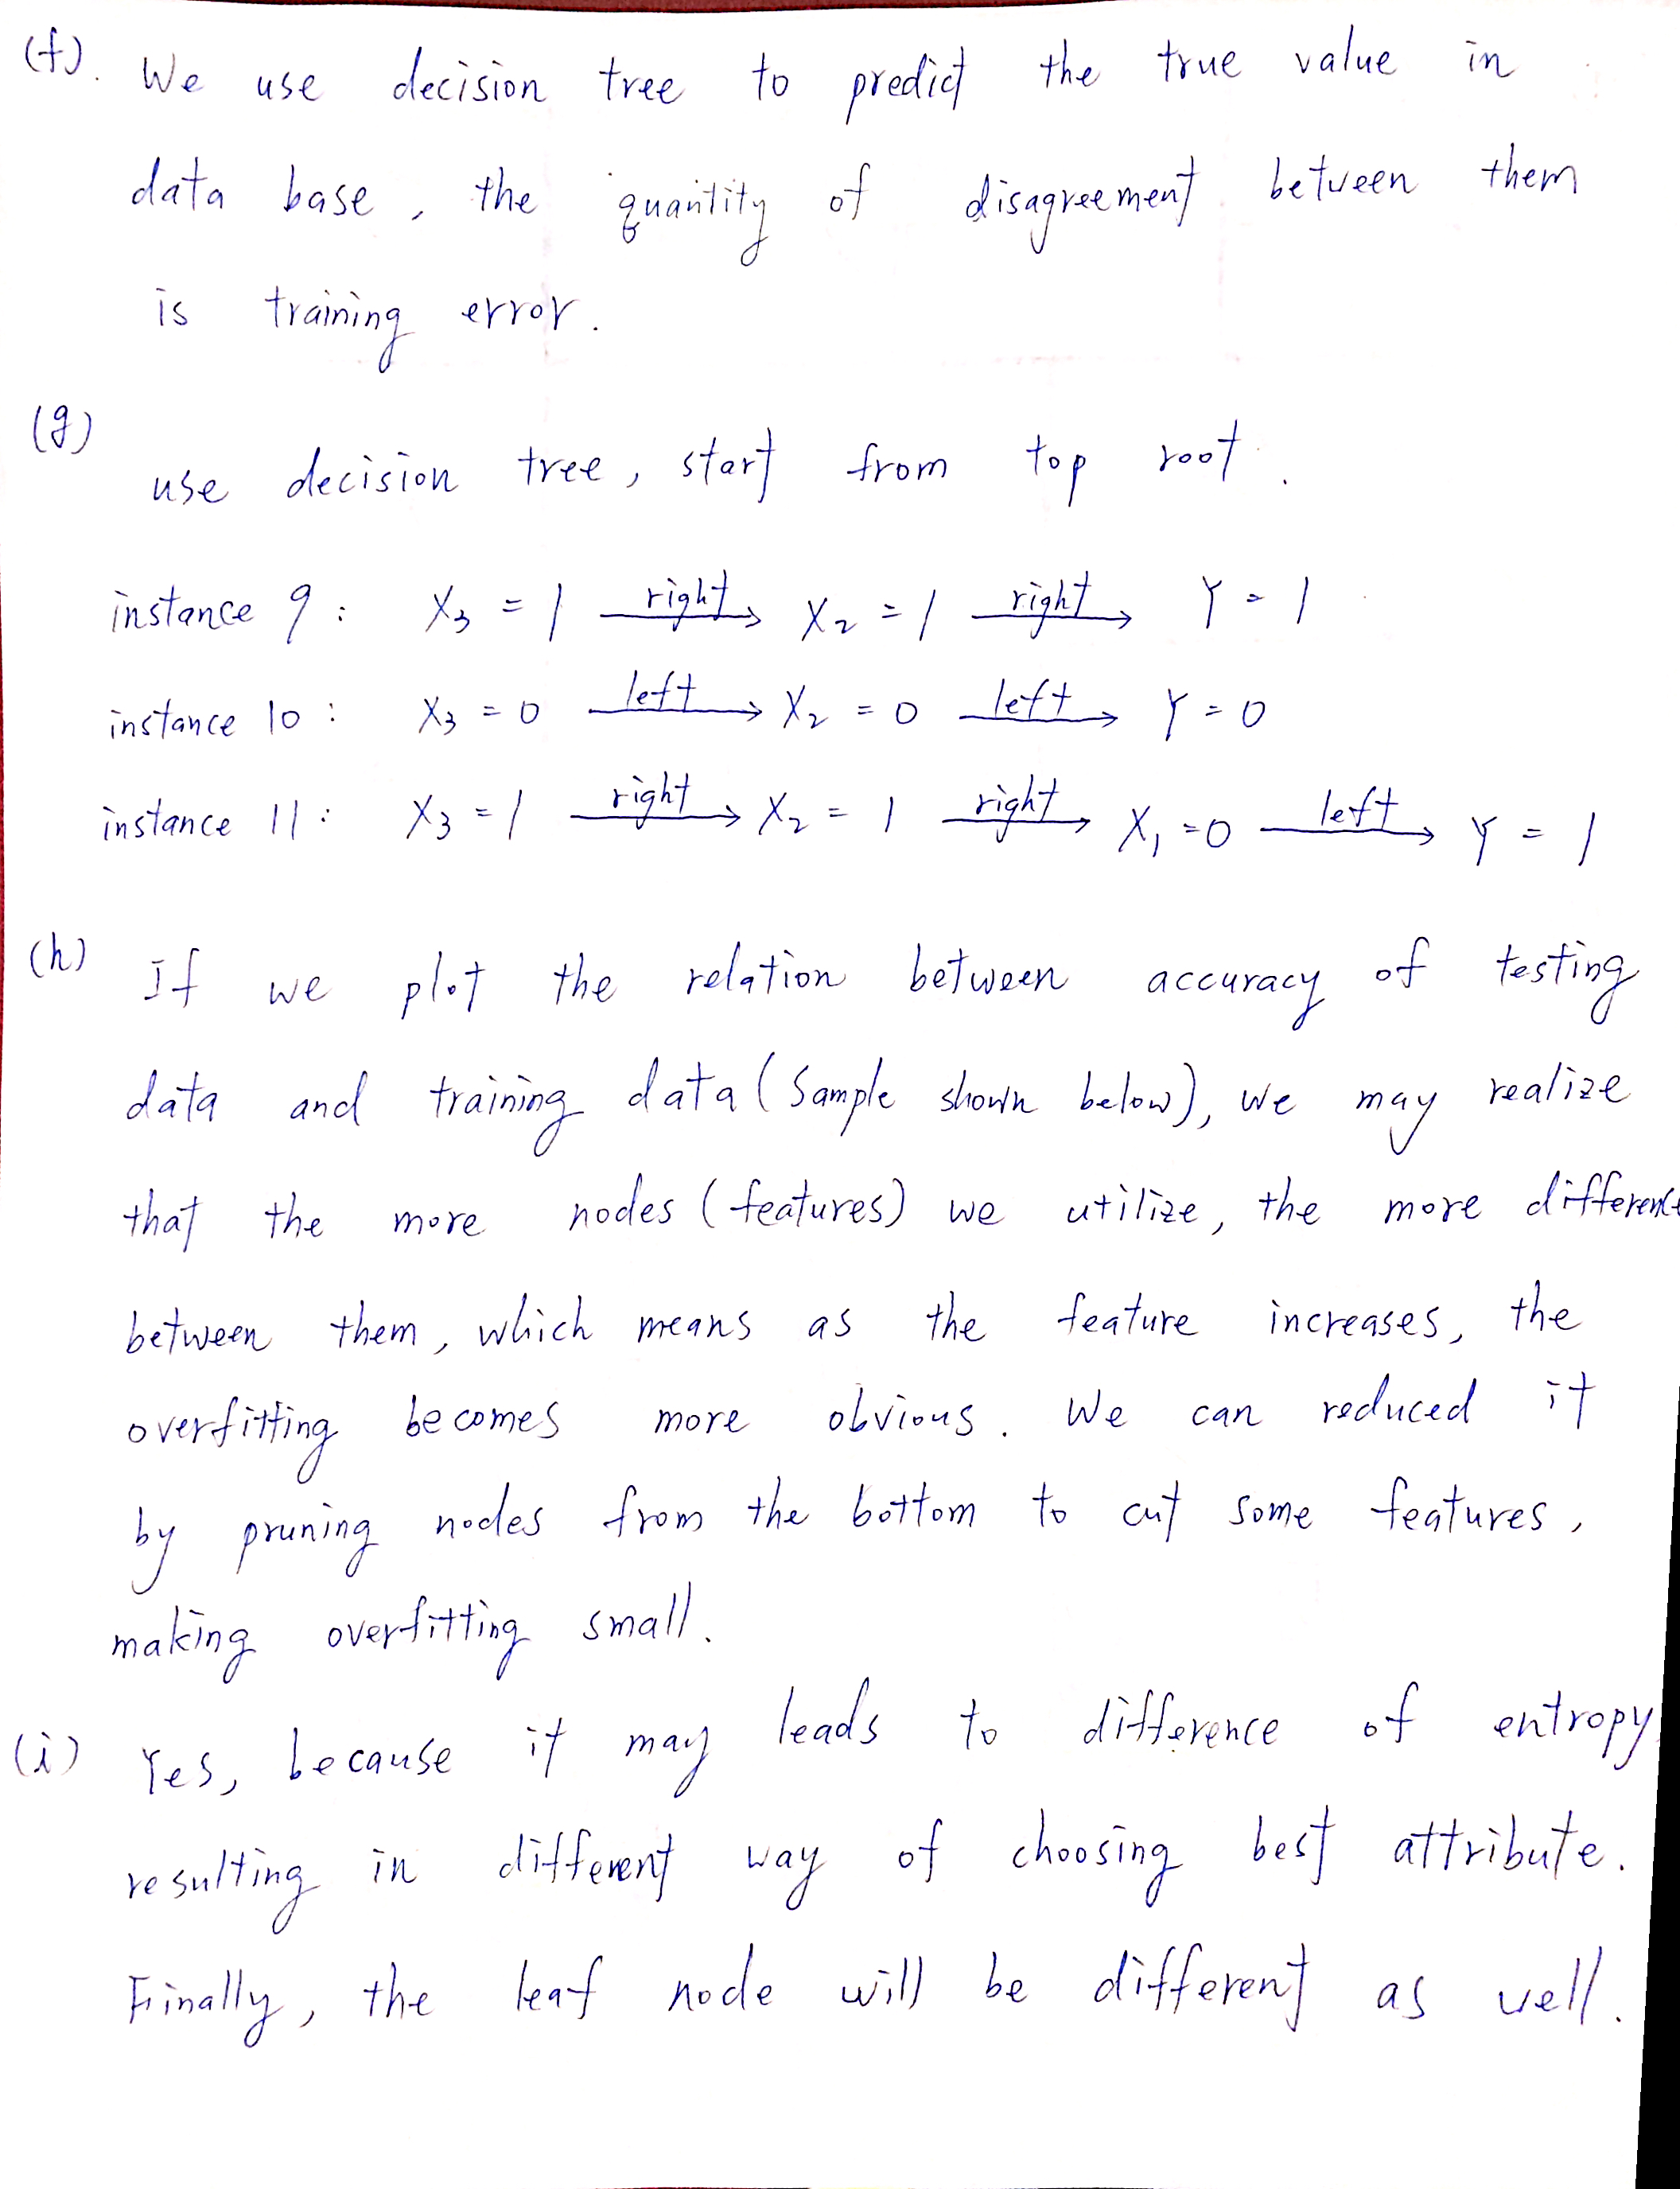 (f). We use decision tree to predict the true value in
data base, the quantity of disagreement between them
is training error.
(g)
use decision tree, start from top root.
instance 9: X₃ = 1 —right→ X₂ = 1 —right→ Y = 1
instance 10: X₃ = 0 —left→ X₂ = 0 —left→ Y = 0
instance 11: X₃ = 1 —right→ X₂ = 1 —right→ X₁ = 0 —left→ Y = 1
(h) If we plot the relation between accuracy of testing
data and training data (Sample shown below), we may realize
that the more nodes (features) we utilize, the more difference
between them, which means as the feature increases, the
overfitting becomes more obvious. We can reduced it
by pruning nodes from the bottom to cut some features,
making overfitting small.
(i) Yes, because it may leads to difference of entropy
resulting in different way of choosing best attribute.
Finally, the leaf node will be different as well.